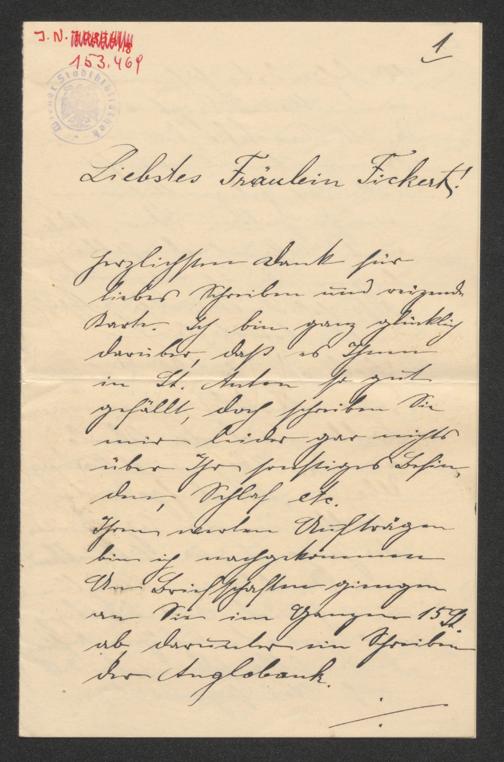 J. N.
153.469
Wiener Stadtbibliothek
1
Liebstes Fräulein Fickert!
Herzlichsten Dank für
liebes Schreiben und reizende
Karte. Ich bin ganz glücklich
darüber, daß es Ihnen
in St. Anton so gut
gefällt, doch schreiben Sie
mir leider gar nichts
über Ihr sonstiges Befin-
den, Schlaf etc.
Ihren werten Aufträgen
bin ich nachgekommen
An Briefschaften giengen
an Sie im Ganzen 15
ab, darunter ein Schreiben
der Anglobank.